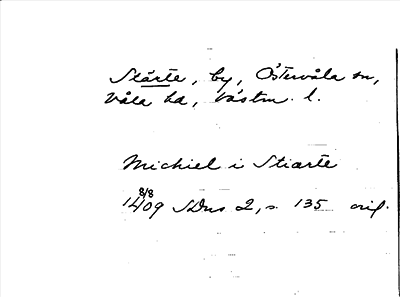 Stärte, by, Östervåla sn,
Våla hd, Västm. l.
Michiel i Stiærte
8/8
1409 SDns 2, s. 135 orig.